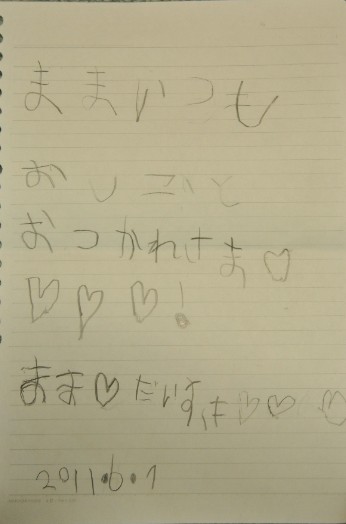 ままいつも
おしごと
おつかれさま♡
♡♡♡!
まま♡だいすき♡♡♡
2011.6.1